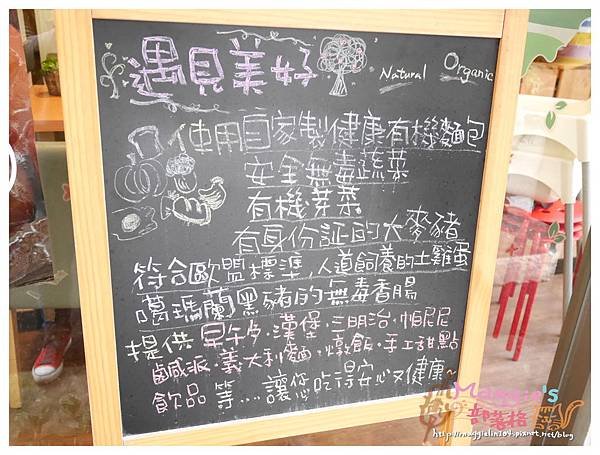 遇見美好 Natural Organic
使用自家製健康有機麵包
安全無毒蔬菜
有機芽菜
有身份証的大麥豬
符合歐盟標準,人道飼養的土雞蛋
噶瑪蘭黑豬的無毒香腸
提供早午夕.漢堡.三明治.帕尼尼
鹹派.義大利麵.燉飯.手工甜點
飲品 等...讓您吃得安心又健康~
Maggie's
部落格
http://maggielin104.pixnet.net/blog